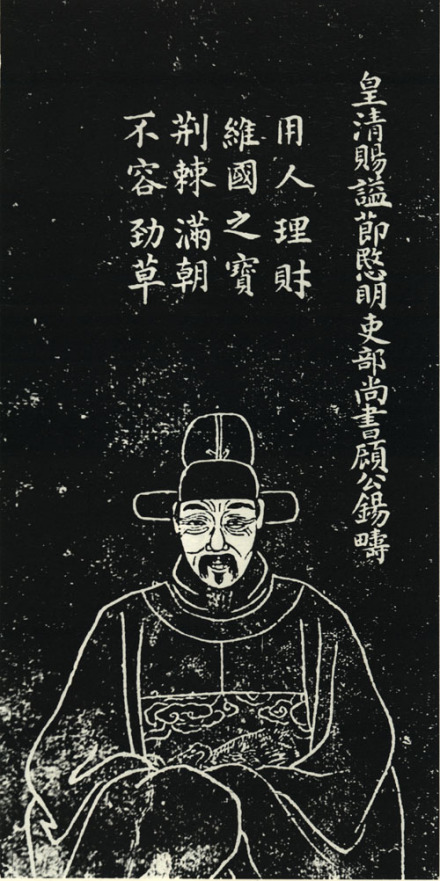 皇清賜謚節愍明吏部尚書顧公錫疇
用人理財
維國之寶
荆棘滿朝
不容勁草